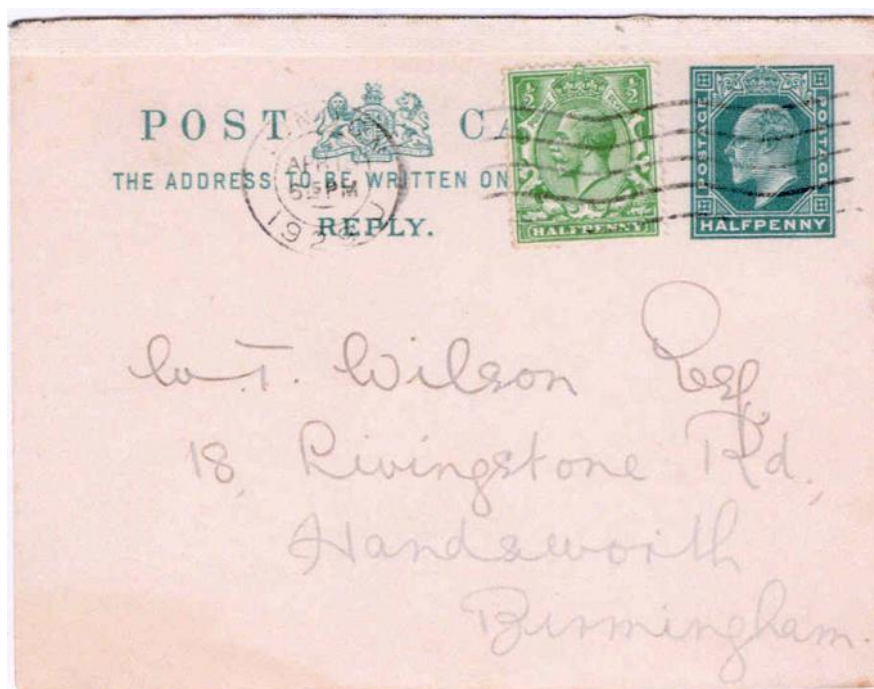 POST CA
THE ADDRESS TO BE WRITTEN ON
REPLY.
APR
5 15 PM
192
½ ½
POSTAGE REVENUE
HALFPENNY
POSTAGE POSTAGE
HALFPENNY
W. T. Wilson Esq
18, Livingstone Rd.,
Handsworth
Birmingham.